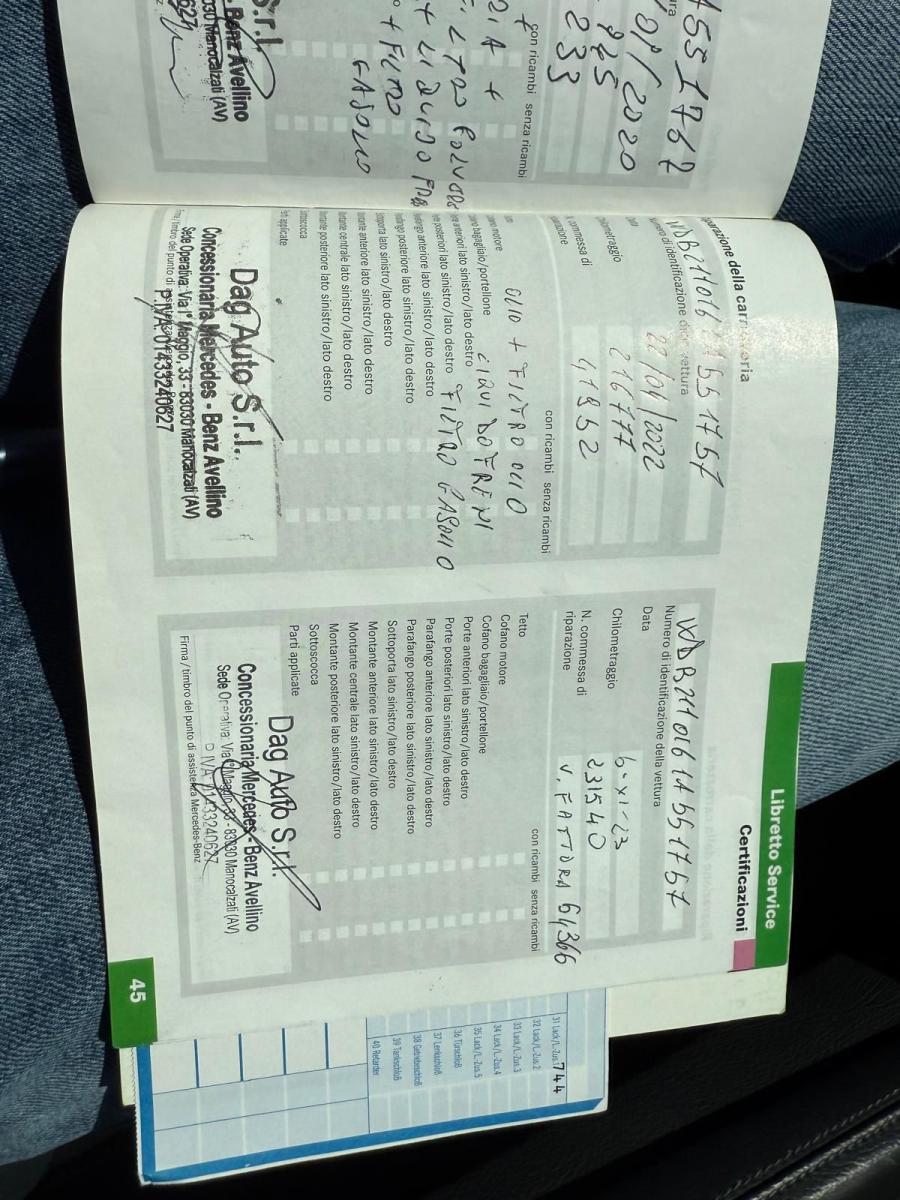 Libretto Service
Certificazioni
A551757
/01/2020
225
233
con ricambi senza ricambi
FILTRO POLVERE
+ LIQUIDO
+ FILTRO
GASOLIO
S.r.l.
Benz Avellino
Manocalzati (AV)
parazione della carrozzeria
WDB2110161A551757
Numero di identificazione della vettura
22/04/2022
216777
41952
con ricambi senza ricambi
OLIO + FILTRO OLIO
LIQUIDO FRENI
FILTRO GASOLIO
bagagliaio/portellone
anteriori lato sinistro/lato destro
posteriori lato sinistro/lato destro
anteriore lato sinistro/lato destro
posteriore lato sinistro/lato destro
lato sinistro/lato destro
anteriore lato sinistro/lato destro
centrale lato sinistro/lato destro
posteriore lato sinistro/lato destro
Dag Auto S.r.l.
Concessionaria Mercedes - Benz Avellino
Sede Operativa: Via 1° Maggio, 33 - 83030 Manocalzati (AV)
P. IVA 01433240627
WDB2110161A551757
Numero di identificazione della vettura
Data 6-XI-23
Chilometraggio 231540
N. commessa di riparazione V. FATTURA 61366
con ricambi senza ricambi
Tetto
Cofano motore
Cofano bagagliaio/portellone
Porte anteriori lato sinistro/lato destro
Porte posteriori lato sinistro/lato destro
Parafango anteriore lato sinistro/lato destro
Parafango posteriore lato sinistro/lato destro
Sottoporta lato sinistro/lato destro
Montante anteriore lato sinistro/lato destro
Montante centrale lato sinistro/lato destro
Montante posteriore lato sinistro/lato destro
Sottoscocca
Parti applicate
Dag Auto S.r.l.
Concessionaria Mercedes - Benz Avellino
Sede Operativa: Via 1° Maggio, 33 - 83030 Manocalzati (AV)
P. IVA 01433240627
Firma/timbro del punto di assistenza Mercedes-Benz
45
31 Lack/L-Zus.1 744
32 Lack/L-Zus.2
33 Lack/L-Zus.3
34 Lack/L-Zus.4
35 Lack/L-Zus.5
36 Türschloß
37 Lenkschloß
38 Getriebeschloß
39 Tankschloß
40 Retarder